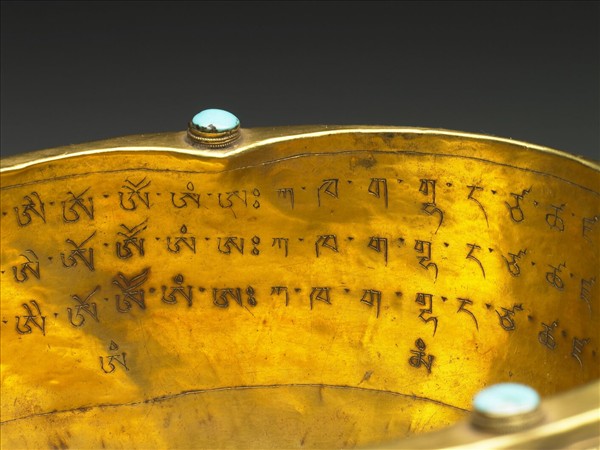 ཨཻ་ཨོ་ཨཽ་ཨཾ་ཨཿ་ཀ་ཁ་ག་གྷ་ང་ཙ་ཚ་
ཨཻ་ཨོ་ཨཽ་ཨཾ་ཨཿ་ཀ་ཁ་ག་གྷ་ང་ཙ་ཚ་
ཨཻ་ཨོ་ཨཽ་ཨཾ་ཨཿ་ཀ་ཁ་ག་གྷ་ང་ཙ་ཚ་ཛ
ཨོཾ